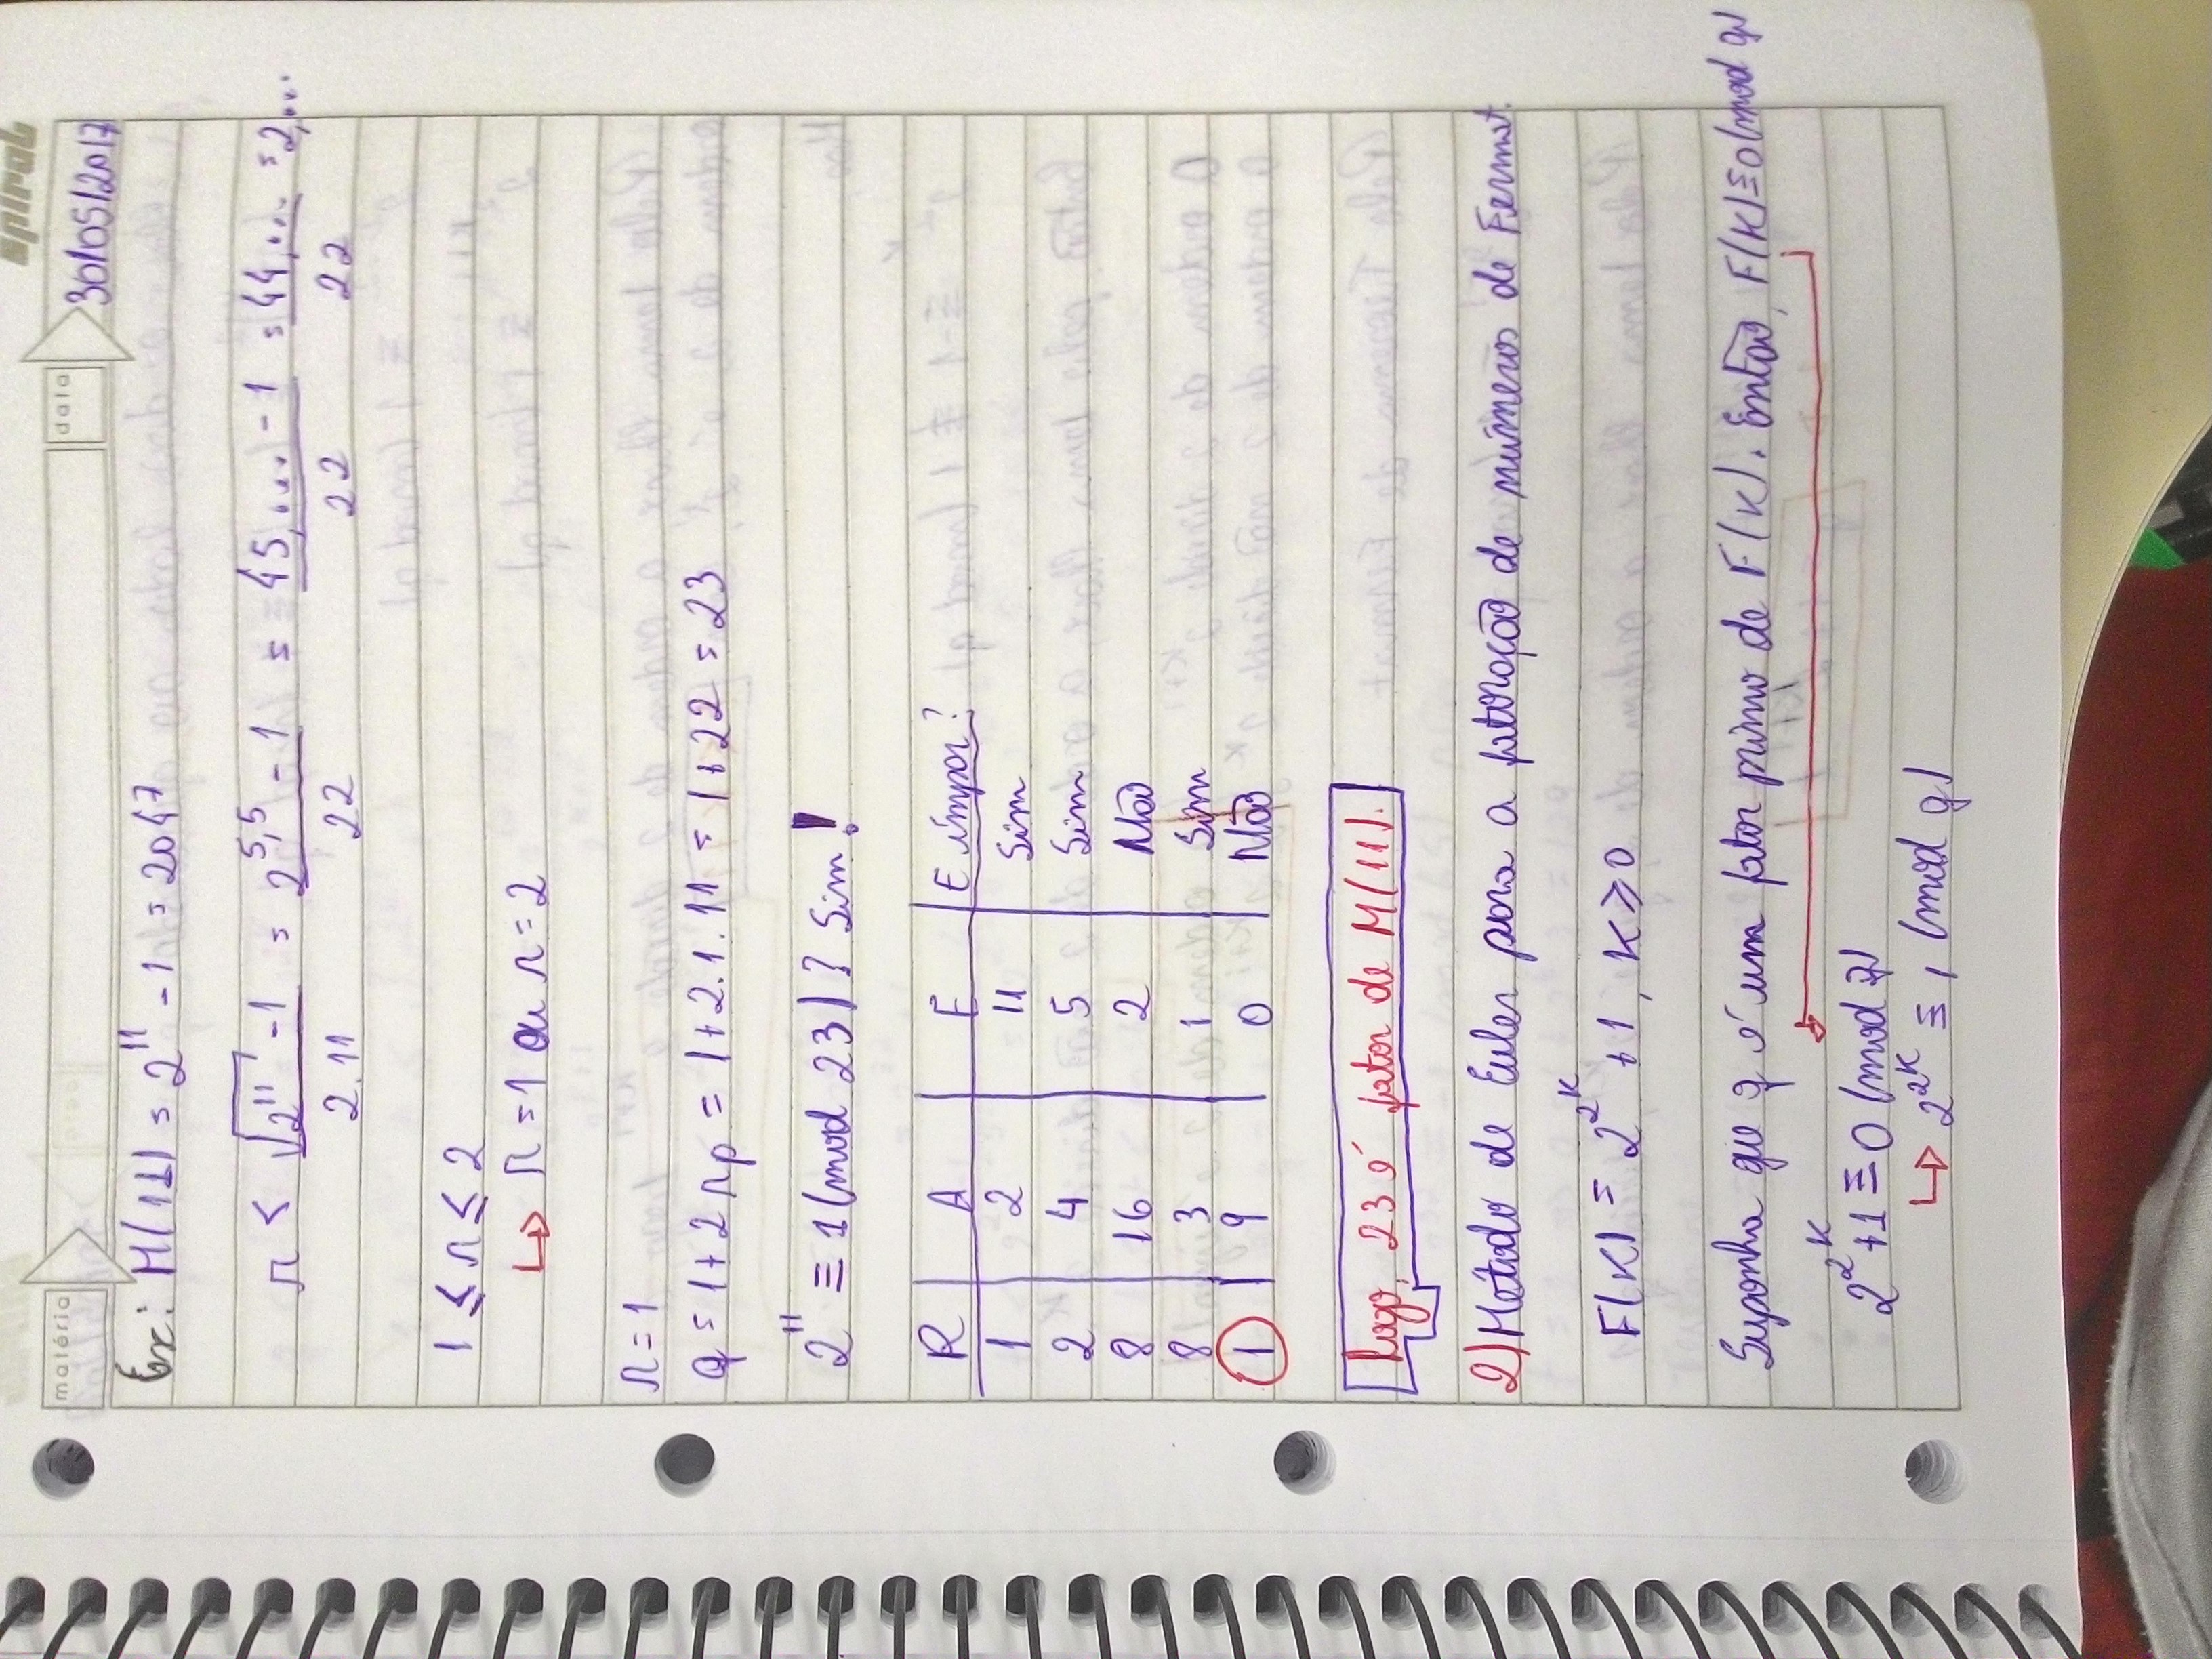 spiral
matéria
data
30/05/2017
Ex: M(11) = 2^11 - 1 = 2047
r < (√2^11 - 1)/(2.11) = (2^5,5 - 1)/22 = (45,... - 1)/22 = 44,.../22 = 2,...
1 ≤ r ≤ 2
↳ r = 1 ou r = 2
r = 1
q = 1 + 2rp = 1 + 2.1.11 = 1 + 22 = 23
2^11 ≡ 1 (mod 23)? Sim!
R A E E ímpar?
1 2 11 Sim
2 4 5 Sim
8 16 2 Não
8 3 1 Sim
1 9 0 Não
Logo, 23 é fator de M(11).
2) Método de Euler para a fatoração de números de Fermat.
F(K) = 2^2^K + 1, K ≥ 0
Suponha que q é um fator primo de F(K). Então, F(K) ≡ 0 (mod q)
2^2^K + 1 ≡ 0 (mod q)
↳ 2^2^K ≡ 1 (mod q)